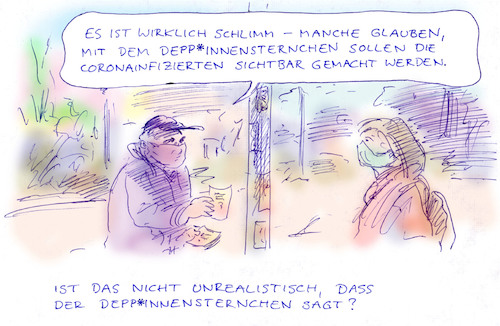 ES IST WIRKLICH SCHLIMM – MANCHE GLAUBEN,
MIT DEM DEPP*INNENSTERNCHEN SOLLEN DIE
CORONAINFIZIERTEN SICHTBAR GEMACHT WERDEN.
IST DAS NICHT UNREALISTISCH, DASS
DER DEPP*INNENSTERNCHEN SAGT?